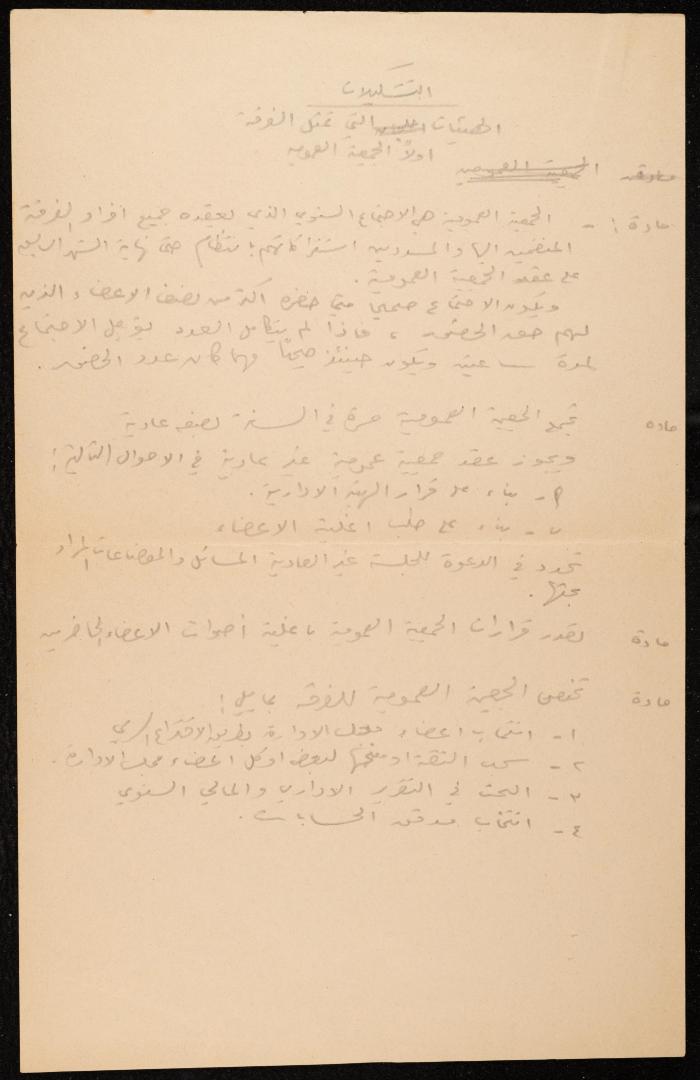 التشكيلات
الهيئات التي تمثل الفرقة
اولاً الجمعية العمومية
الجمعية العمومية
مادة : - الجمعية العمومية هي الاجتماع السنوي الذي يعقده جميع افراد الفرقة
المنضمين اليها والمسددين اشتراكاتهم بانتظام حتى نهاية الشهر السابق
على عقد الجمعية العمومية .
ويكون الاجتماع صحيحاً متى حضره اكثر من نصف الاعضاء الذين
لهم حق الحضور ، فاذا لم يتكامل العدد يؤجل الاجتماع
لمدة ساعتين ويكون حينئذ صحيحاً مهما كان عدد الحضور .
مادة تجتمع الجمعية العمومية مرة في السنة بصفة عادية
ويجوز عقد جمعية عمومية غير عادية في الاحوال التالية :
أ - بناء على قرار الهيئة الادارية .
ب - بناء على طلب اغلبية الاعضاء
تحدد في الدعوة للجلسة غير العادية المسائل والموضوعات المراد
بحثها .
مادة تصدر قرارات الجمعية العمومية باغلبية أصوات الاعضاء الحاضرين
مادة تختص الجمعية العمومية للفرقة بما يلي :
١ - انتخاب اعضاء مجلس الادارة بطريق الاقتراع السري
٢ - سحب الثقة او منحها لبعض او كل اعضاء مجلس الادارة .
٣ - البحث في التقرير الاداري والمالي السنوي
٤ - انتخاب مدقق الحسابات .